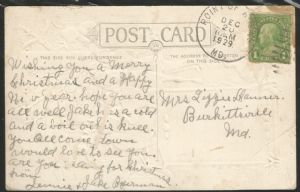 POST CARD
THIS SIDE FOR CORRESPONDENCE
THE ADDRESS
POINT OF
DEC
1929
MD.
1
Wishing you a Merry
Christmas and a Happy
year hope you are
all well Jake is a cold
and a boil on is knee.
You all come down
would love to see you
are you for Christmas
from
Lennie & Jake
Mrs Lizzie Hanner.
Burkittsville
Md.